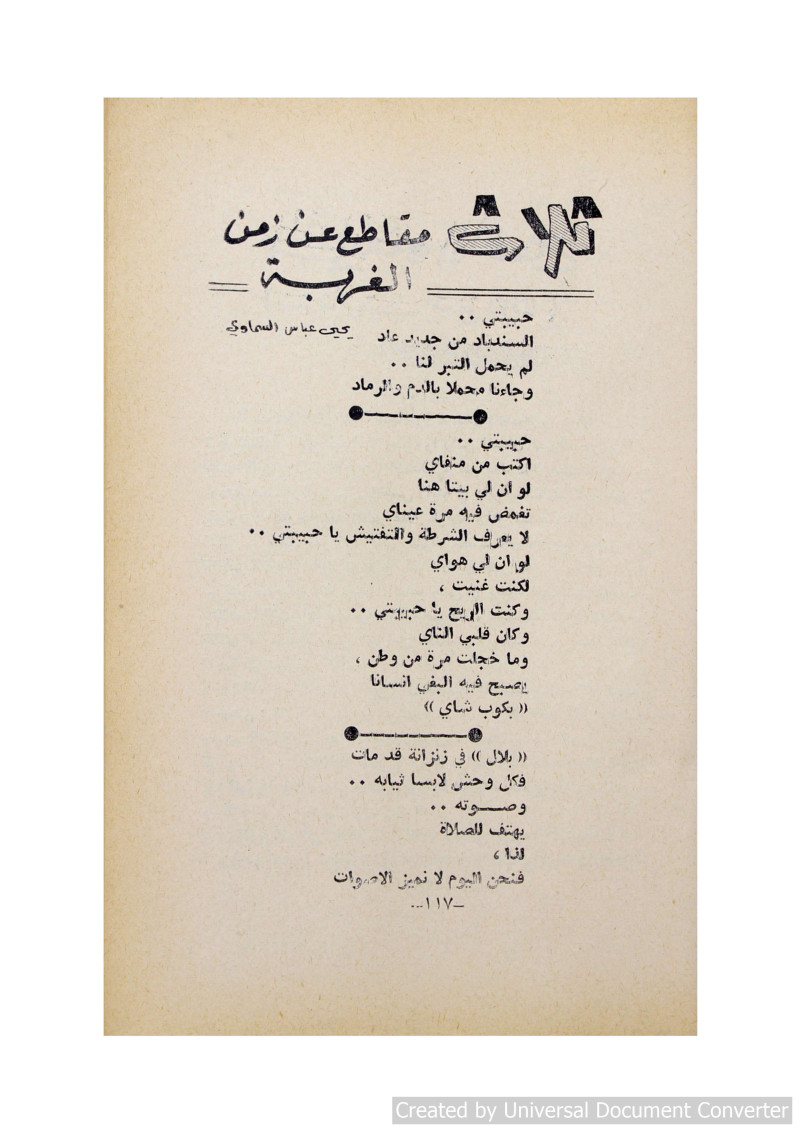 ثلاث مقاطع عن زمن
الغربة
يحيى عباس السماوي
حبيبتي ..
السندباد من جديد عاد
لم يحمل التبر لنا ..
وجاءنا محملا بالدم والرماد
حبيبتي ..
اكتب من منفاي
لو ان لي بيتا هنا
تغمض فيه مرة عيناي
لا يعرف الشرطة والتفتيش يا حبيبتي ..
لو ان لي هواي
لكنت غنيت ،
وكنت الريح يا حبيبتي ..
وكان قلبي الناي
وما خجلت مرة من وطن ،
يصبح فيه البغي انسانا
(( بكوب شاي ))
(( بلال )) في زنزانة قد مات
فكل وحش لابسا ثيابه ..
وصـــوته ..
يهتف للصلاة
لذا ،
فنحن اليوم لا نميز الاصوات
-١١٧-
Created by Universal Document Converter